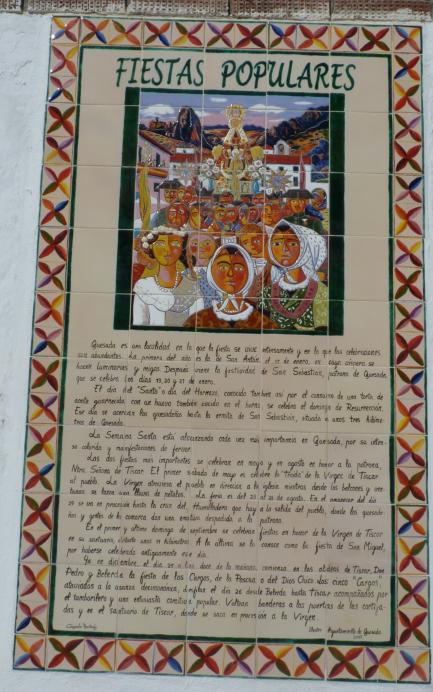 FIESTAS POPULARES
Quesada es una localidad en la que la fiesta se vive intensamente y en la que las celebraciones
son abundantes. La primera del año es la de San Antón, el 17 de enero, en cuya víspera se
hacen luminarias y migas. Después viene la festividad de San Sebastián, patrono de Quesada,
que se celebra los días 19, 20 y 21 de enero.
El día del "Santo" o día del Hornazo, conocido también así por el consumo de una torta de
aceite guarnecida con un huevo también cocido en el horno, se celebra el domingo de Resurrección.
Ese día se acercan los quesadeños hasta la ermita de San Sebastián, situada a unos tres kilóme-
tros de Quesada.
La Semana Santa está alcanzando cada vez más importancia en Quesada, por su
su colorido y manifestaciones de fervor.
Las dos fiestas más importantes se celebran en mayo y en agosto en honor a la patrona,
Ntra. Señora de Tíscar. El primer sábado de mayo es la "traída" de la Virgen de Tíscar
al pueblo. La Virgen atraviesa el pueblo en dirección a la iglesia mientras desde los balcones y ven-
tanas se lanza una lluvia de pétalos. La feria es del 23 al 28 de agosto. En el amanecer del día
29 se va en procesión hasta la cruz del Humilladero que hay a la salida del pueblo, donde los quesade-
ños y gentes de la comarca dan una emotiva despedida a la patrona.
En el primer y último domingo de septiembre se celebran fiestas en honor de la Virgen de Tíscar
en su santuario, distante unos 14 kilómetros. A la última se la conoce como la fiesta de San Miguel,
por haberse celebrado antiguamente ese día.
Ya en diciembre, el día 24 a las doce de la mañana, comienza en las aldeas de Tíscar, Don
Pedro y Belerda la fiesta de los Cargos, de la Pascua o del Dios Chico. Los cinco "Cargos",
ataviados a la usanza decimonónica, desfilan el día 25 desde Belerda hasta Tíscar acompañados por
el tamborilero y una entusiasta comitiva popular. Voltean banderas a las puertas de los cortija-
das y en el santuario de Tíscar, donde se saca en procesión a la Virgen.
Ayuntamiento de Quesada